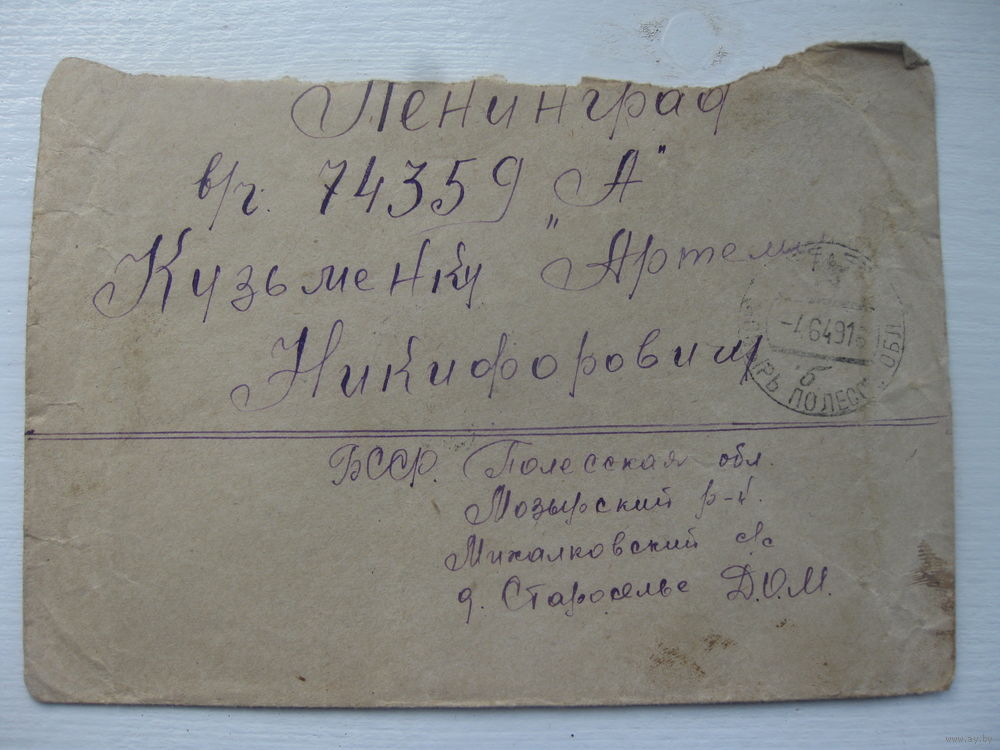 Ленинград
в/ч. 74359 „А"
Кузьменку Артему
Никифоровичу
-4.6.49.18
б
МОЗЫРЬ ПОЛЕС. ОБЛ
БССР. Полесская обл.
Мозырский р-н.
Михалковский с/с
д. Староселье Д.О.М.
www.ay.by